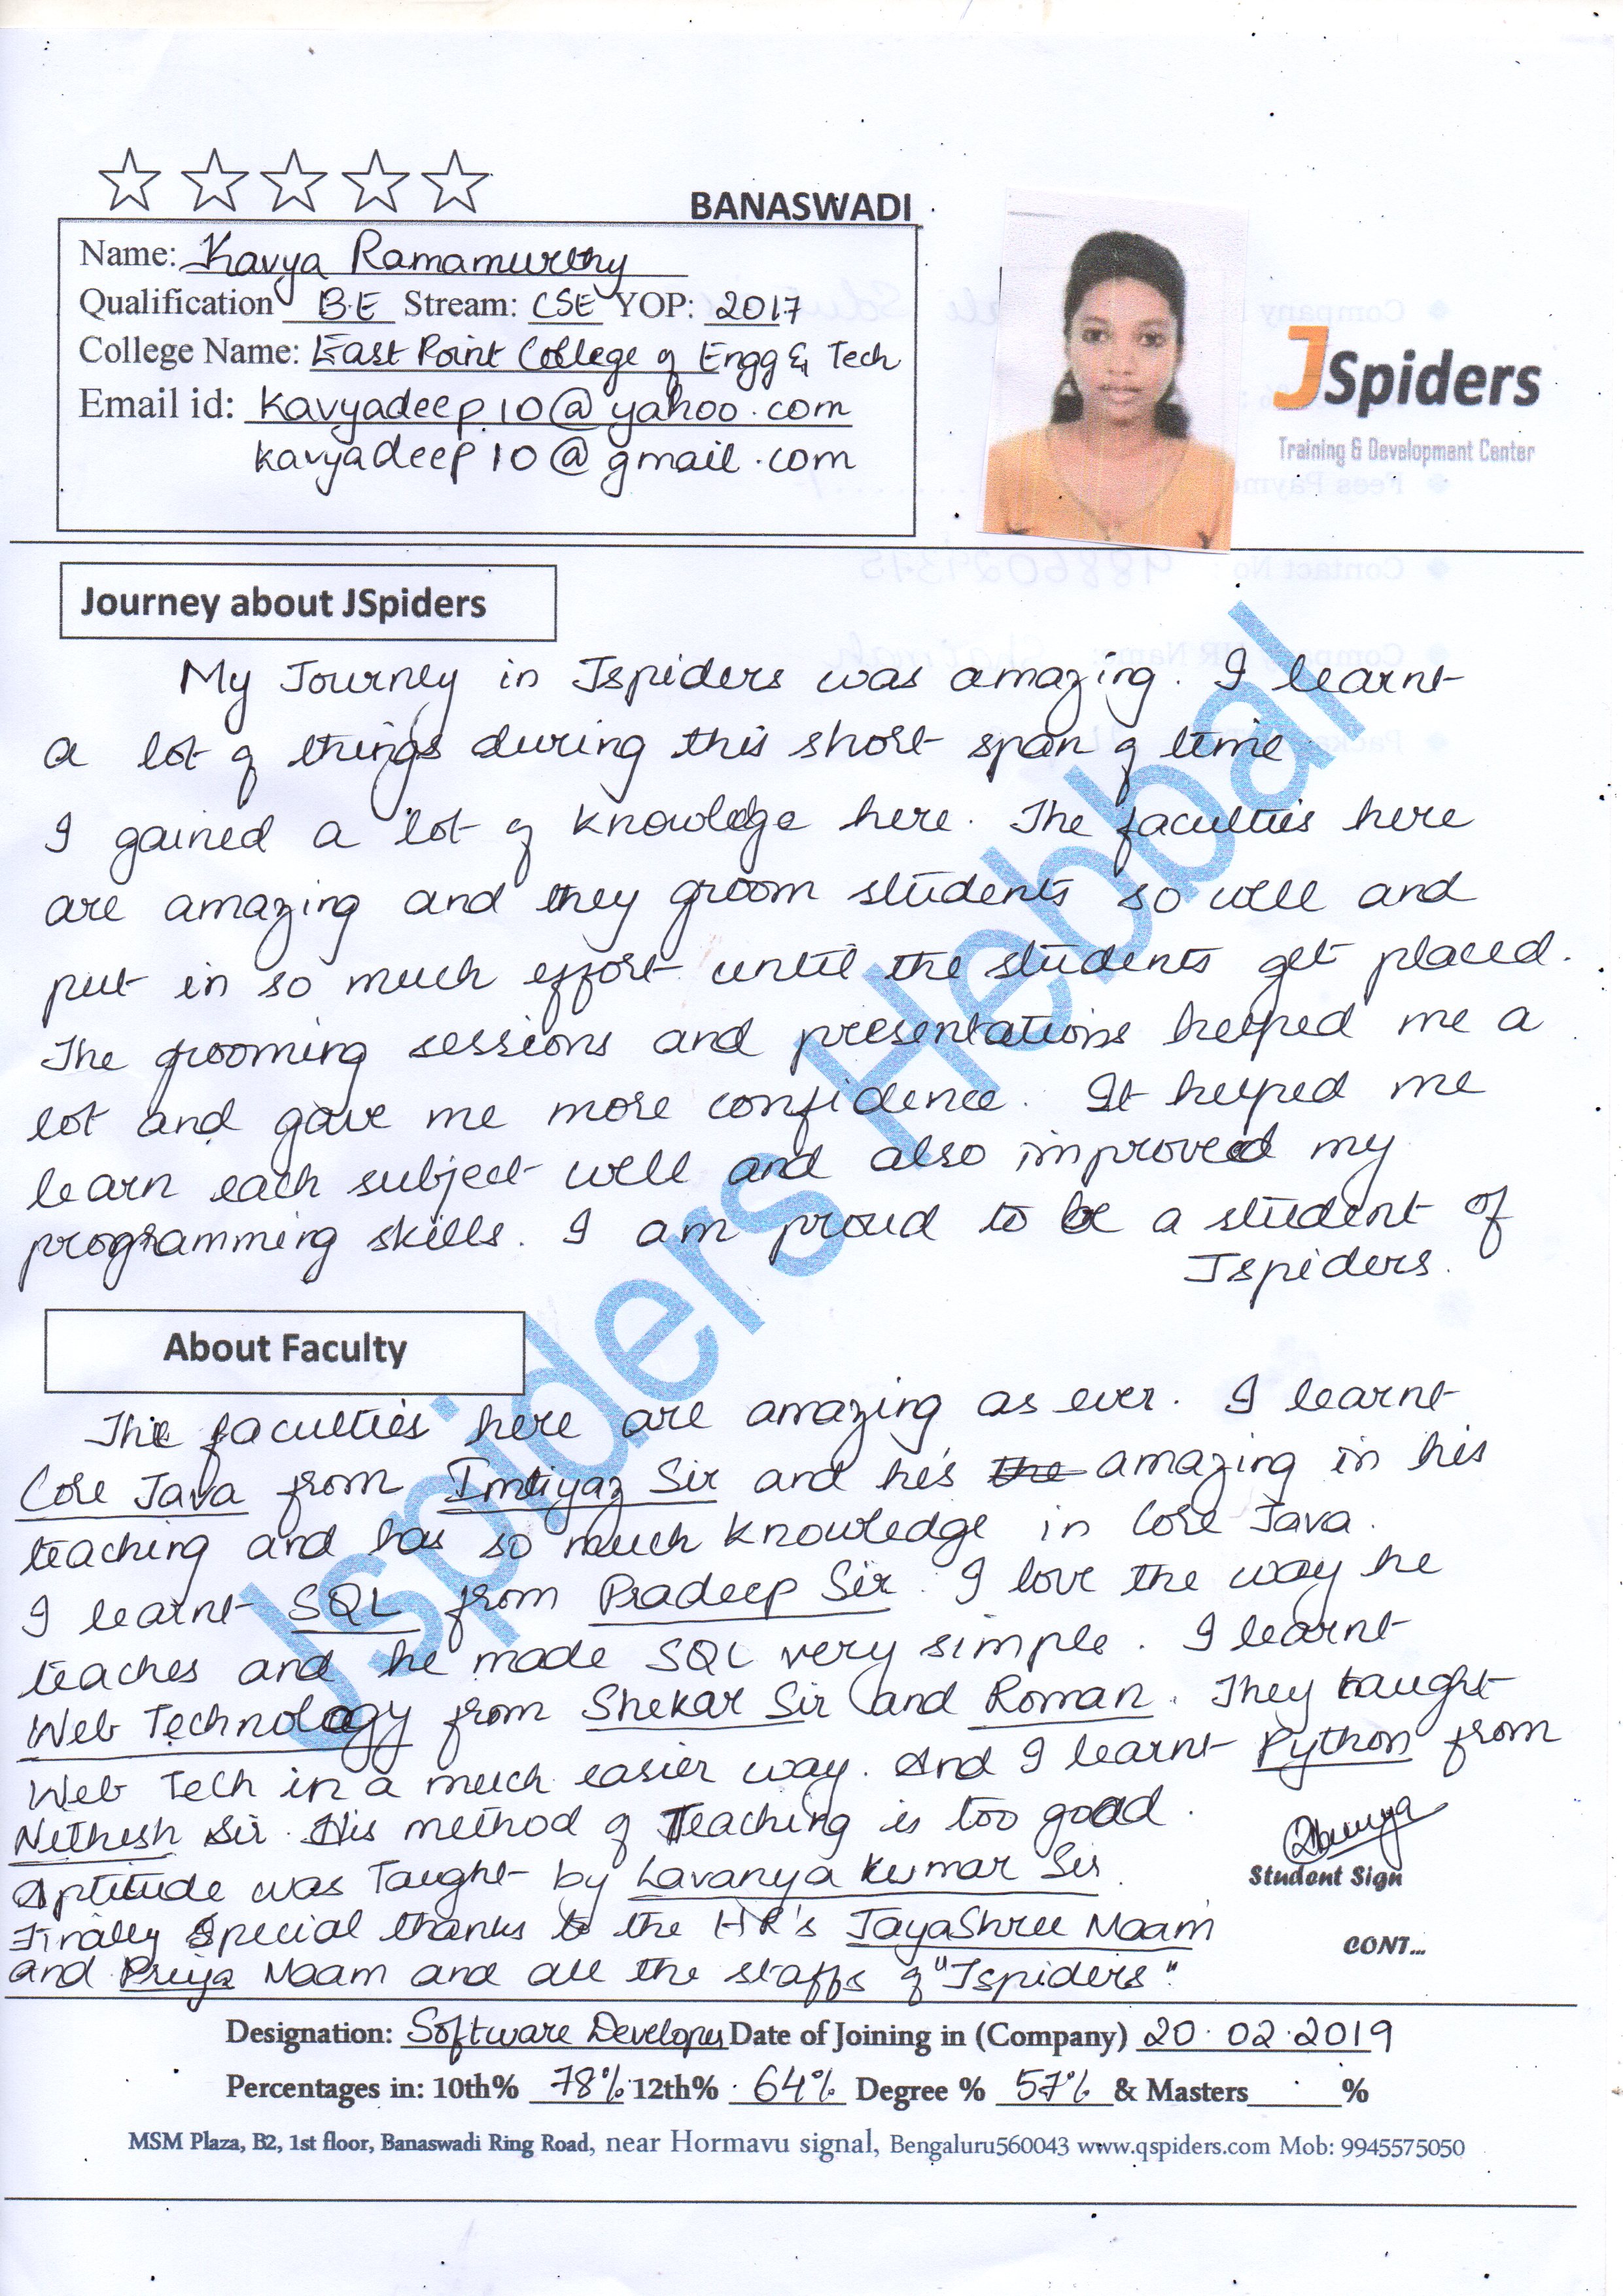 BANASWADI
Name: Kavya Ramamurthy
Qualification B.E Stream: CSE YOP: 2017
College Name: East Point College of Engg & Tech
Email id: kavyadeep10@yahoo.com
kavyadeep10@gmail.com
JSpiders
Training & Development Center
Journey about JSpiders
My Journey in Jspiders was amazing. I learnt
a lot of things during this short span of time.
I gained a lot of knowledge here. The faculties here
are amazing and they groom students so well and
put in so much effort until the students get placed.
The grooming sessions and presentations helped me a
lot and gave me more confidence. It helped me
learn each subject well and also improved my
programming skills. I am proud to be a student of
Jspiders.
About Faculty
The faculties here are amazing as ever. I learnt
Core Java from Imtiyaz Sir and he's the amazing in his
teaching and has so much knowledge in Core Java.
I learnt SQL from Pradeep Sir. I love the way he
teaches and he made SQL very simple. I learnt
Web Technology from Shekar Sir and Roman. They taught
Web Tech in a much easier way. And I learnt Python from
Nethesh Sir. His method of Teaching is too good.
Aptitude was Taught by Lavanya Kumar Sir.
Student Sign
Finally Special thanks to the HR's JayaShree Maam
CONT...
and Priya Maam and all the staffs of "Jspiders".
Designation: Software Developer Date of Joining in (Company) 20.02.2019
Percentages in: 10th% 78% 12th% 64% Degree % 57% & Masters______%
MSM Plaza, B2, 1st floor, Banaswadi Ring Road, near Hormavu signal, Bengaluru560043 www.qspiders.com Mob: 9945575050
Jspiders Hebbal